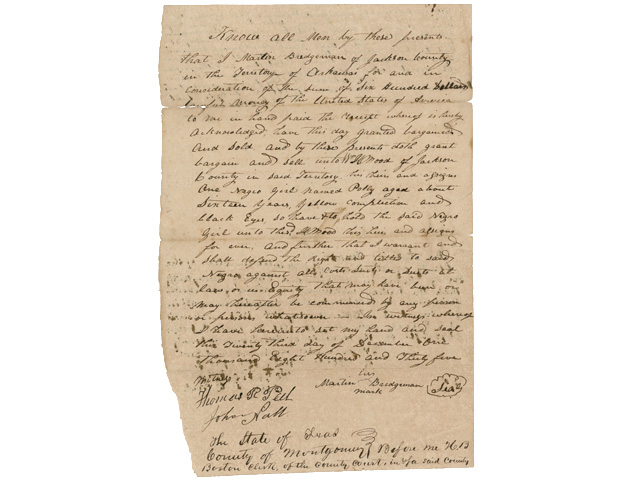 Know all Men by these presents
that I Martin Bridgeman of Jackson County
in the Territory of Arkansas for and in
Consideration of the Sum of Six Hundred Dollars
Money of the United States of America
to me in hand paid the receipt whereof is hereby
acknowledged, have this day granted bargained
and sold and by these presents doth grant
bargain and sell unto Wood of Jackson
County in said Territory his heirs and assigns
One Negro Girl named Polly aged about
Sixteen Years, Yellow Complection and
black Eyes, to have & to hold the said Negro
Girl unto the said Wood his heirs and assigns
for ever. And further that I warrant and
shall defend the Right and title to said
Negro against all Suits or Suits at
Law or in Equity that may have been or
may hereafter be commenced by any person
or persons whatsoever in witness whereof
I have hereunto set my hand and seal
this Twenty third day of December One
thousand Eight Hundred and Thirty five
his
Martin Bridgeman
mark
Seal
Thomas R
John
The State of Texas
County of Montgomery Before me
Clerk, of the County Court, in & for said County